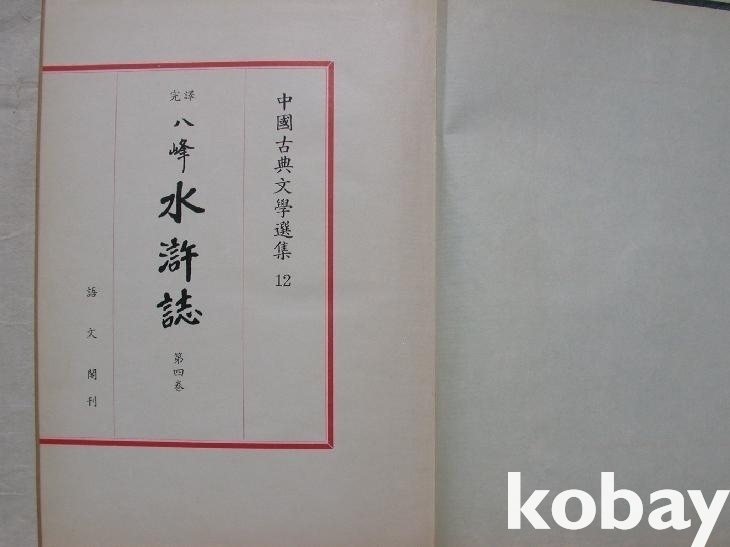 中國古典文學選集 12
完譯
八峰
水滸誌
第四卷
語文閣刊
kobay